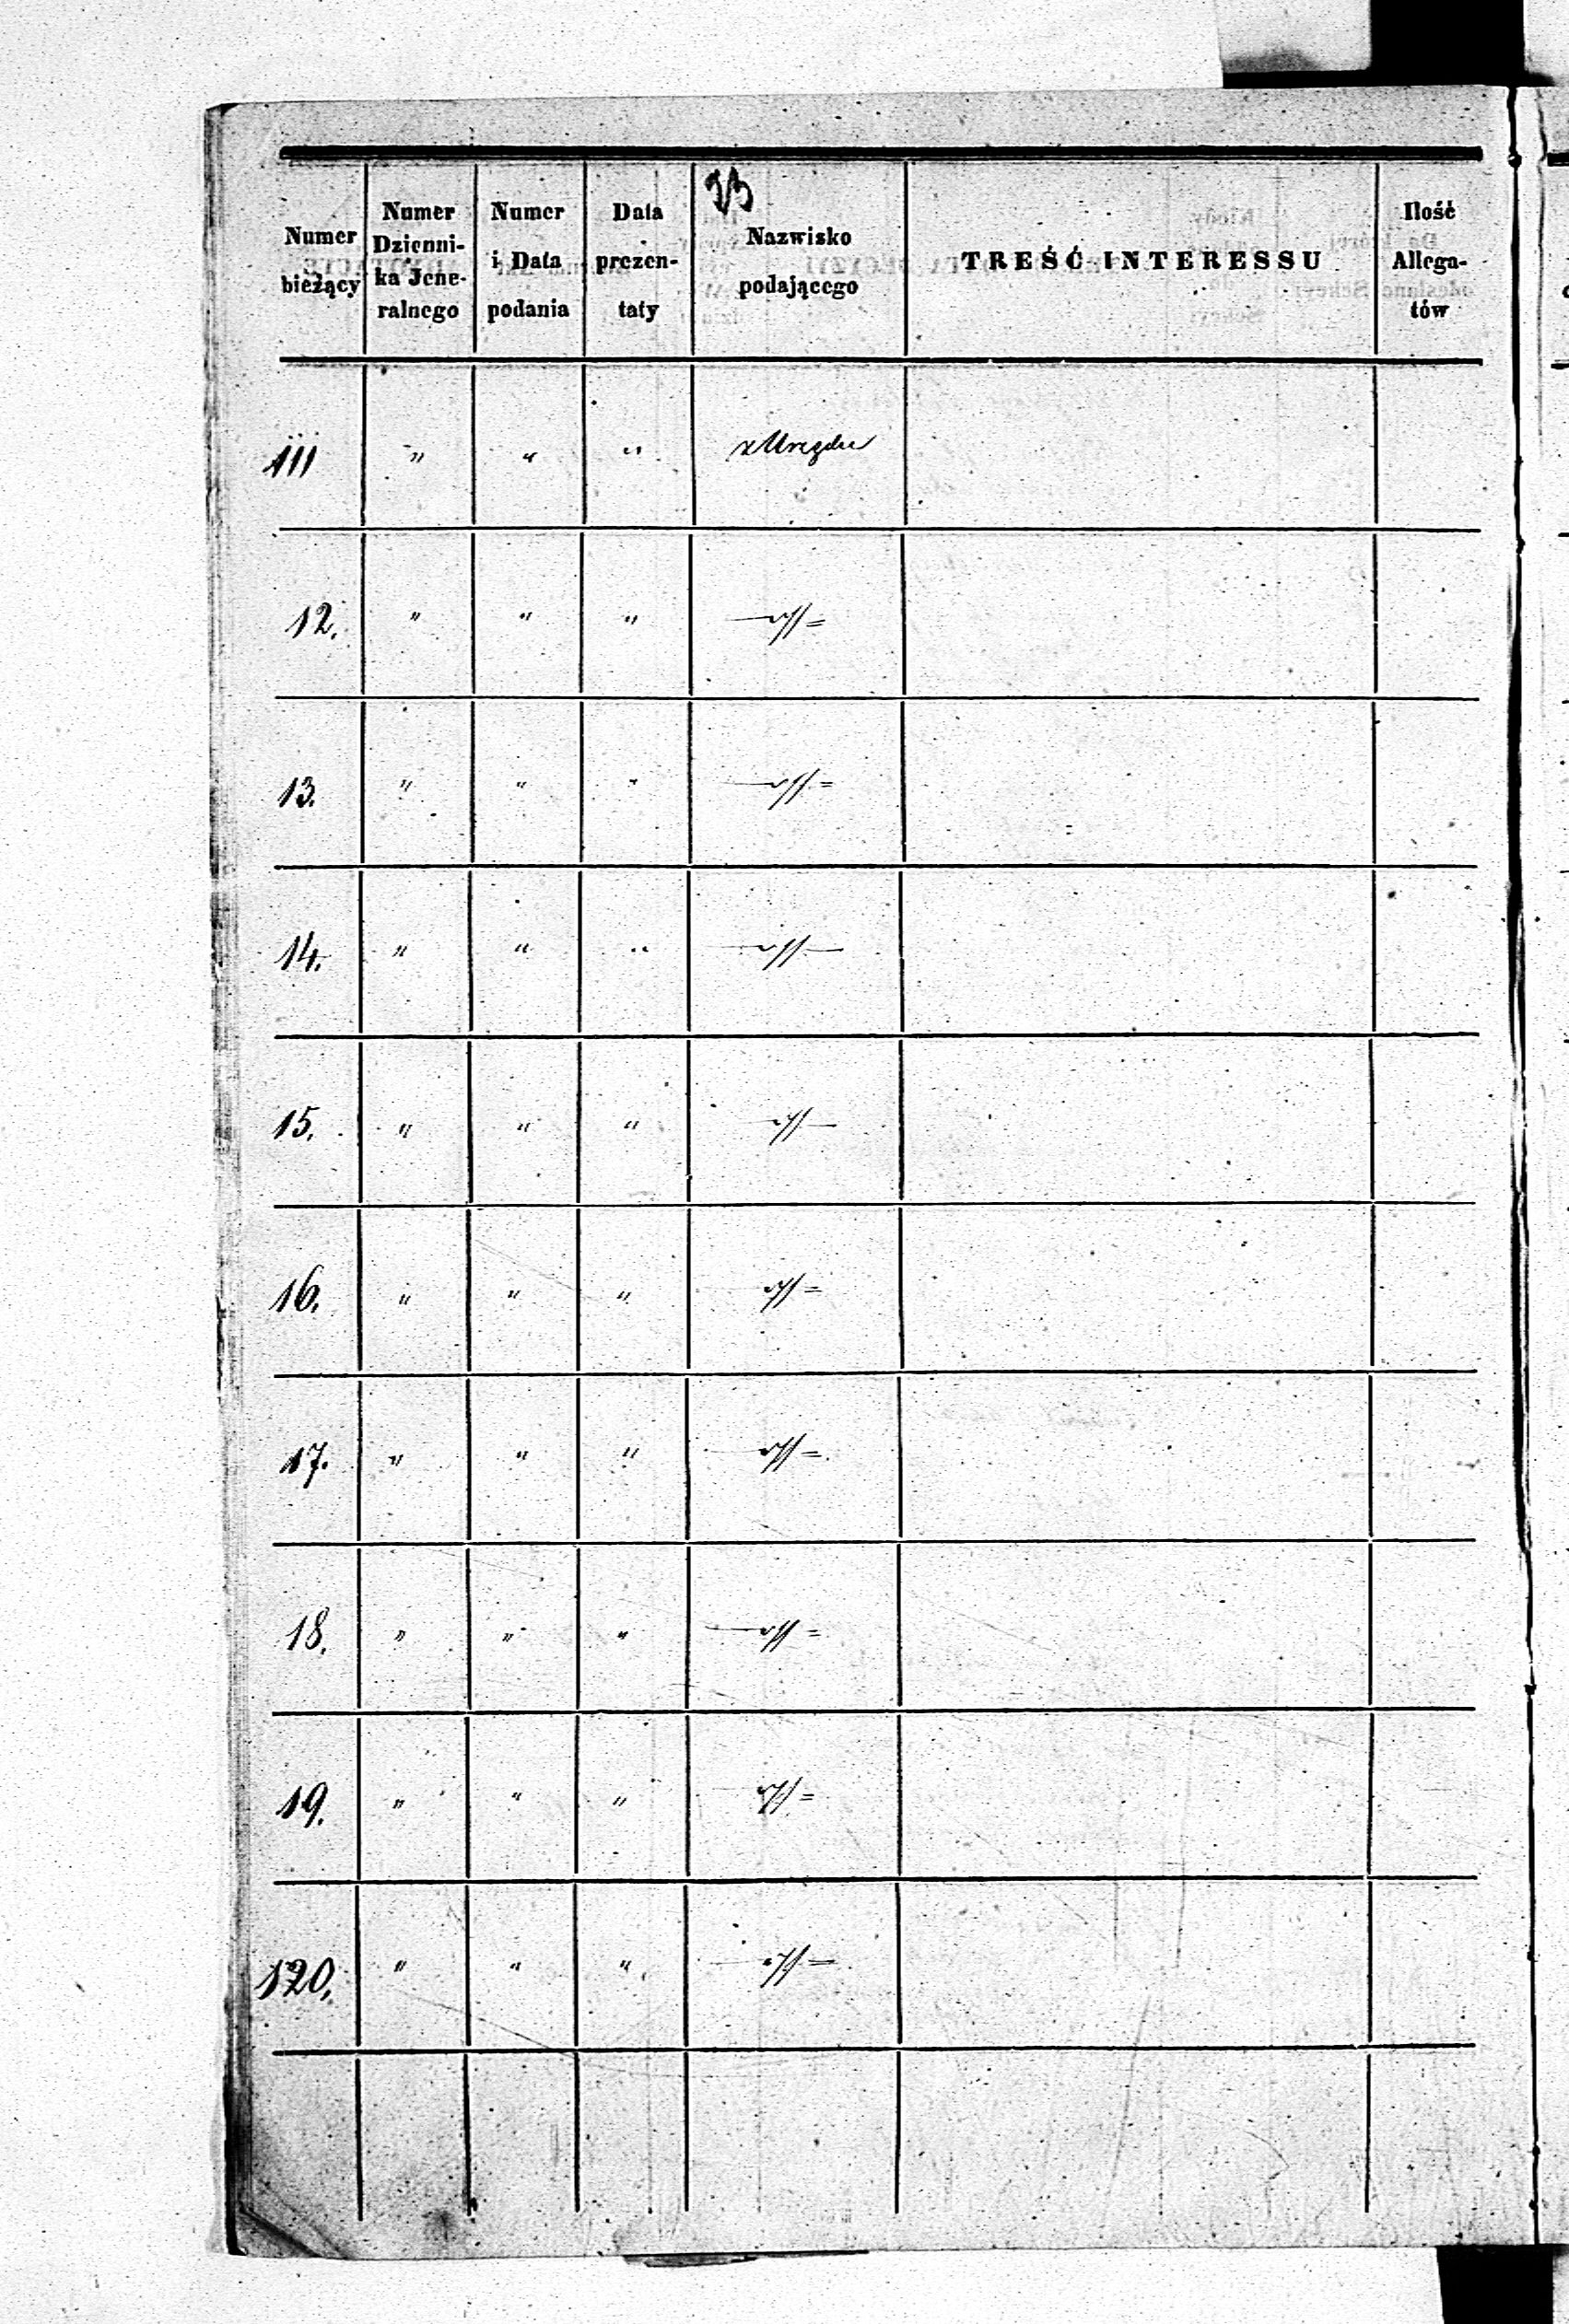 23
Numer bieżący | Numer Dzienni-ka Jene-ralnego | Numer i Data podania | Data prezen-taty | Nazwisko podającego | TREŚĆ INTERESSU | Ilość Allega-tów
111 " " " z Urzędu
12. " " "
13. " " "
14. " " "
15. " " "
16. " " "
17. " " "
18. " " "
19. " " "
120. " " "